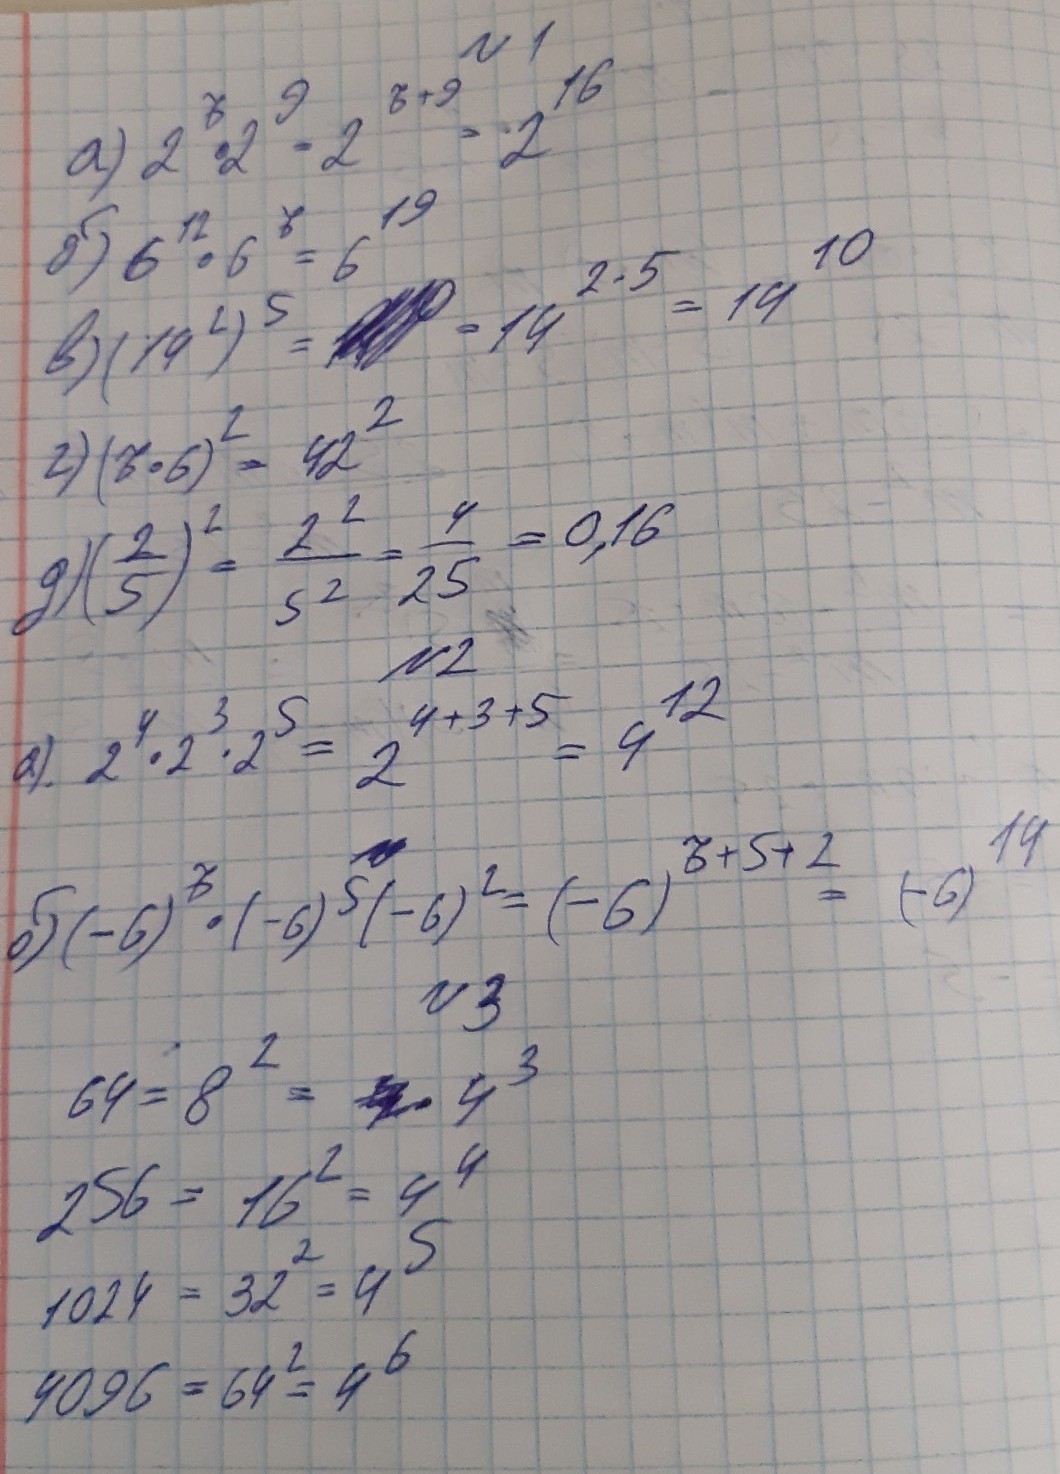 №1
а) 2⁷·2⁹=2⁷⁺⁹=2¹⁶
б) 6¹²·6⁷=6¹⁹
в) (14²)⁵= =14²·⁵=14¹⁰
г) (7·6)²=42²
д) (2/5)²=2²/5²=4/25=0,16
№2
а). 2⁴·2³·2⁵=2⁴⁺³⁺⁵=4¹²
б) (-6)⁷·(-6)⁵(-6)²=(-6)⁷⁺⁵⁺²=(-6)¹⁴
№3
64=8²=4³
256=16²=4⁴
1024=32²=4⁵
4096=64²=4⁶